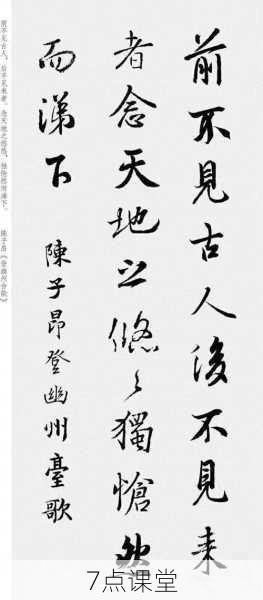 前不見古人後不見来
者念天地之悠々獨愴然
而涕下 陳子昂登幽州臺歌
前不见古人，后不见来者。念天地之悠悠，独怆然而涕下。 陈子昂《登幽州台歌》
7点课堂